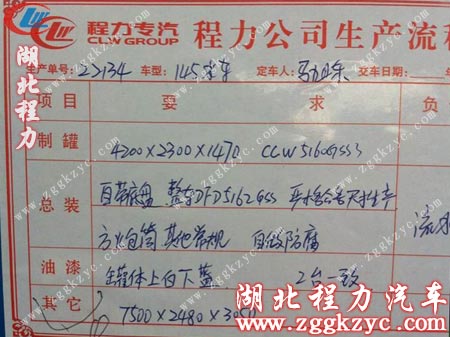 程力专汽
CLW GROUP
程力公司生产流程
生产单号: 22134 车型: 145水车 定车人: 交车日期: 年
项目 要求 负
制罐 4200×2300×1470 CCW5160GSS3
总装 自带底盘 整车DFD5162GSS 按公告尺寸生产
方火包筒 其他常规 自做防腐
流水
油漆 罐体上白下蓝 2台一致
其它 7500×2480×3050
湖北程力
湖北程力汽车
www.zggkzyc.com